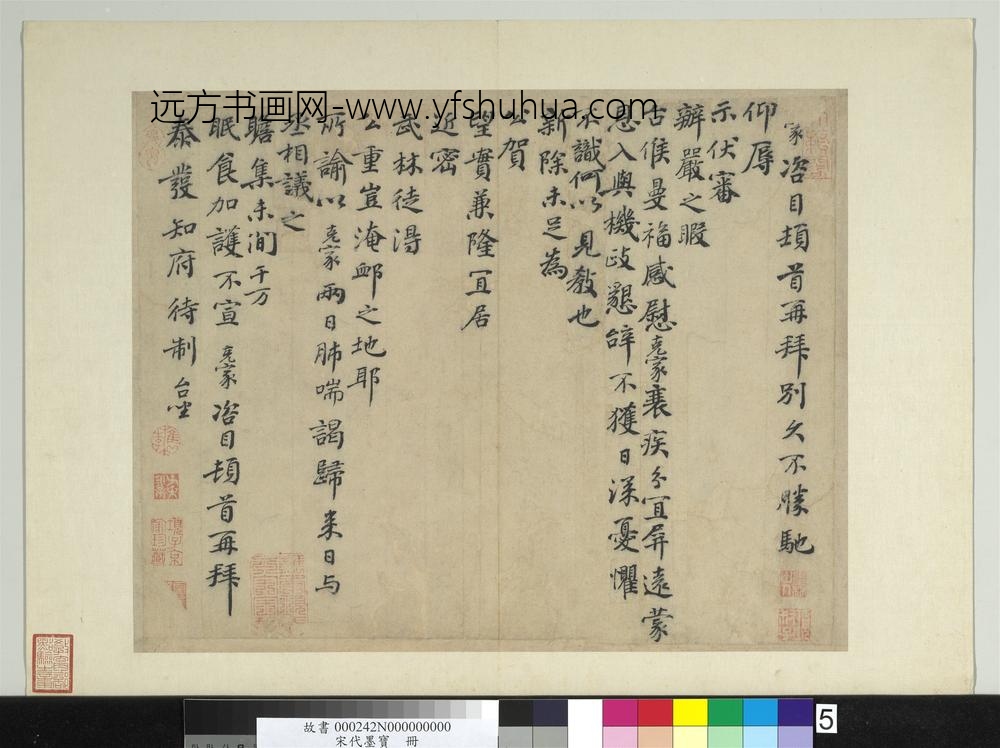 远方书画网-www.yfshuhua.com
家咨目頓首再拜別久不勝馳
仰辱
示伏審
辦嚴之暇
台候曼福感慰克家衰疾分宜屏遠蒙
恩入與機政懇辭不獲日深憂懼
不識何以見教也
新除未足為
公賀
望實兼隆宜居
近密
武林徒得
公重豈淹卹之地耶
所諭以克家兩日肺喘謁歸來日与
丞相議之
瞻集未間千万
眠食加護不宣克家咨目頓首再拜
泰發知府待制台坐
故書 000242N000000000
宋代墨寶 冊
5